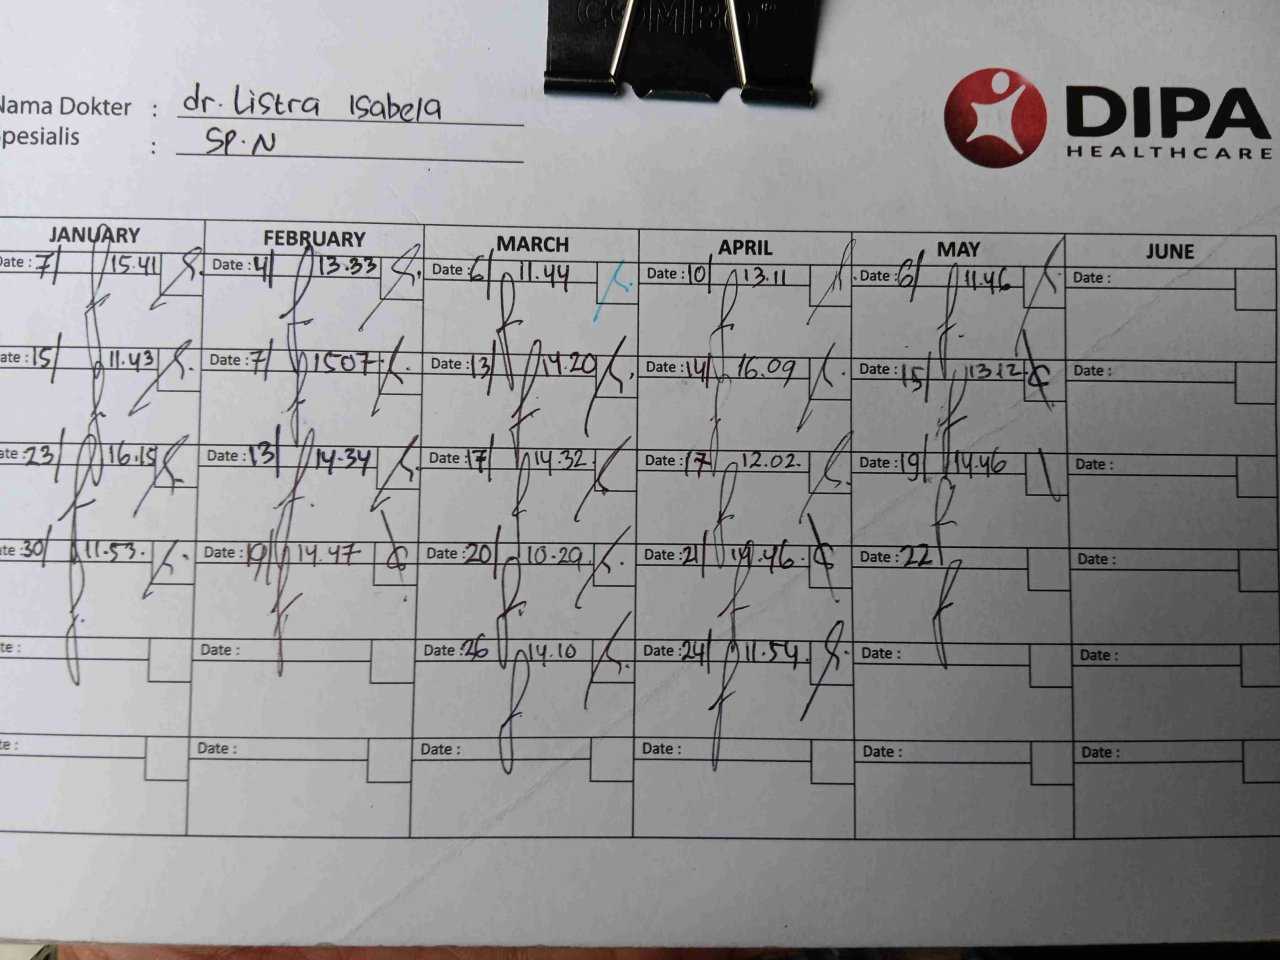 COMBO
Nama Dokter : dr. Listra Isabela
Spesialis : Sp.N
DIPA
HEALTHCARE
JANUARY FEBRUARY MARCH APRIL MAY JUNE
Date : 7/ 15.41 Date : 4/ 13.33 Date : 6/ 11.44 Date : 10/ 13.11 Date : 8/ 11.46 Date :
Date : 15/ 11.43 Date : 7/ 1507 Date : 13/ 14.20 Date : 14/ 16.09 Date : 15/ 13.12 Date :
Date : 23/ 16.15 Date : 13/ 14.34 Date : 17/ 14.32 Date : 17 12.02. Date : 19/ 14.46 Date :
Date : 30/ 11.53. Date : 19/ 14.47 Date : 20/ 10.29 Date : 21/ 14.46. Date : 22/ Date :
Date : Date : Date : 26 14.10 Date : 24/ 11.54. Date : Date :
Date : Date : Date : Date : Date : Date :